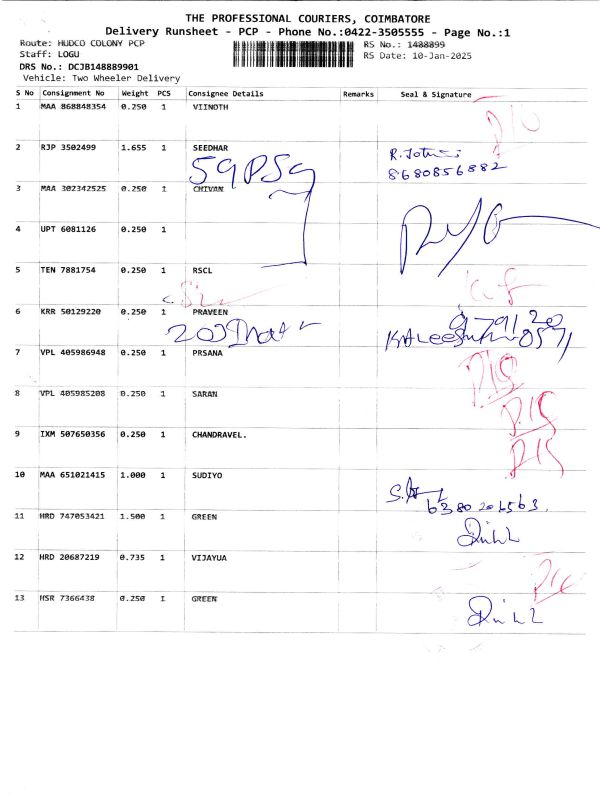 THE PROFESSIONAL COURIERS, COIMBATORE
Delivery Runsheet - PCP - Phone No.:0422-3505555 - Page No.:1
Route: HUDCO COLONY PCP
RS No.: 1488899
Staff: LOGU
RS Date: 10-Jan-2025
DRS No.: DCJB148889901
Vehicle: Two Wheeler Delivery
S No Consignment No Weight PCS Consignee Details Remarks Seal & Signature
1 MAA 868848354 0.250 1 VIINOTH
2 RJP 3502499 1.655 1 SEEDHAR
8680856882
3 MAA 302342525 0.250 1 CHIVAN
4 UPT 6081126 0.250 1
5 TEN 7881754 0.250 1 RSCL
6 KRR 50129220 0.250 1 PRAVEEN
7 VPL 405986948 0.250 1 PRSANA
8 VPL 405985208 0.250 1 SARAN
9 IXM 507650356 0.250 1 CHANDRAVEL.
10 MAA 651021415 1.000 1 SUDIYO
6380206563
11 HRD 747053421 1.500 1 GREEN
12 HRD 20687219 0.735 1 VIJAYUA
13 HSR 7366438 0.250 1 GREEN